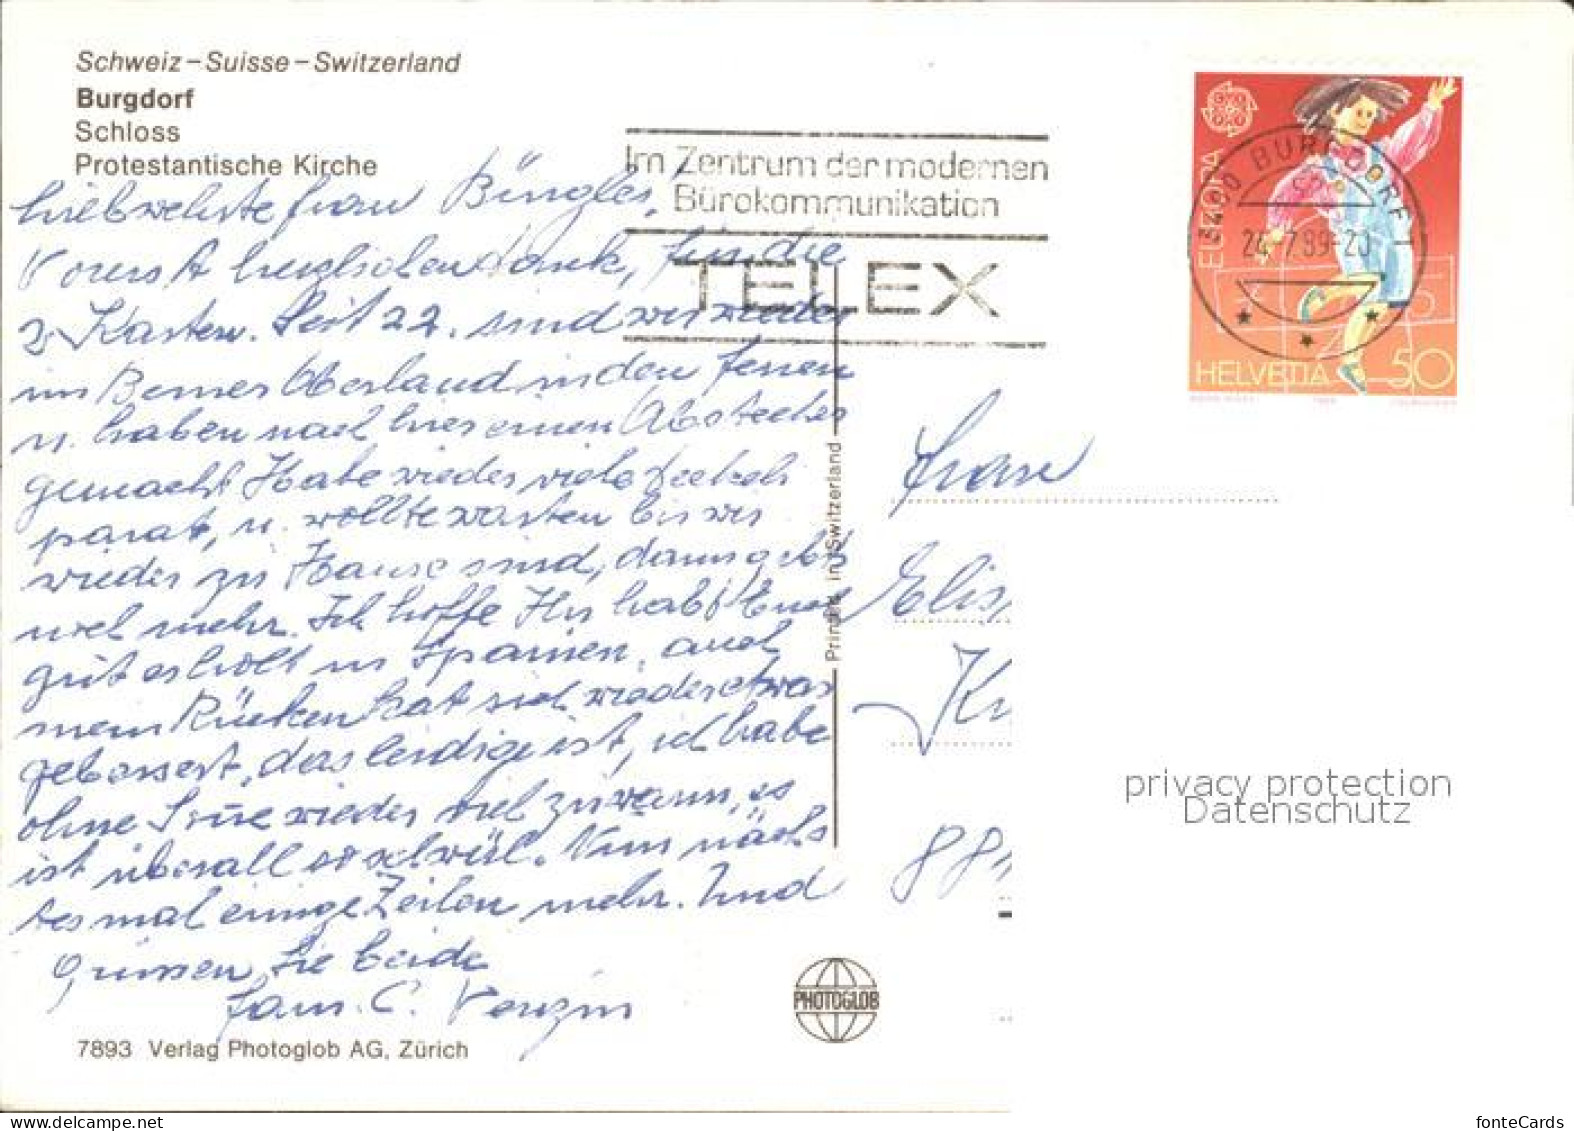 Schweiz – Suisse – Switzerland
Burgdorf
Schloss
Protestantische Kirche
Im Zentrum der modernen
Bürokommunikation
TELEX
EUROPA
3400 BURGDORF 1
24.-7.89-20
HELVETIA 50
Frau
Vorerst herzlichen dank, für die
2 Karten. Seit 22. sind wir wieder
im Berner Oberland in den ferien
u. haben nach hier einen Abstecher
gemacht Habe wieder viele
parat, u. wollte warten bis wir
wieder zu Hause sind, dann gebts
viel mehr. Ich hoffe Ihr habt Euch
gut erholt in Spanien, auch
mein Rücken hat sich wieder etwas
gebessert, das leidige ist, ich habe
ohne wieder viel zu warm, es
ist überall so schwül. Nun nächs
tes mal einige Zeilen mehr. Und
Grüssen Sie beide
Fam. C. Venzin
Printed in Switzerland
Frau
Elis
Kr
88
privacy protection
Datenschutz
PHOTOGLOB
7893 Verlag Photoglob AG, Zürich
fonteCards